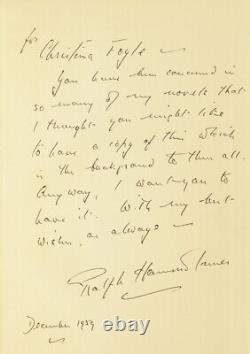 for
Christina Foyle
You have been concerned in
so many of my novels that
I thought you might like
to have a copy of this which
is the background to them all.
Anyway, I want you to
have it. With my best
wishes, as always
Ralph Hammond Innes
December 1959